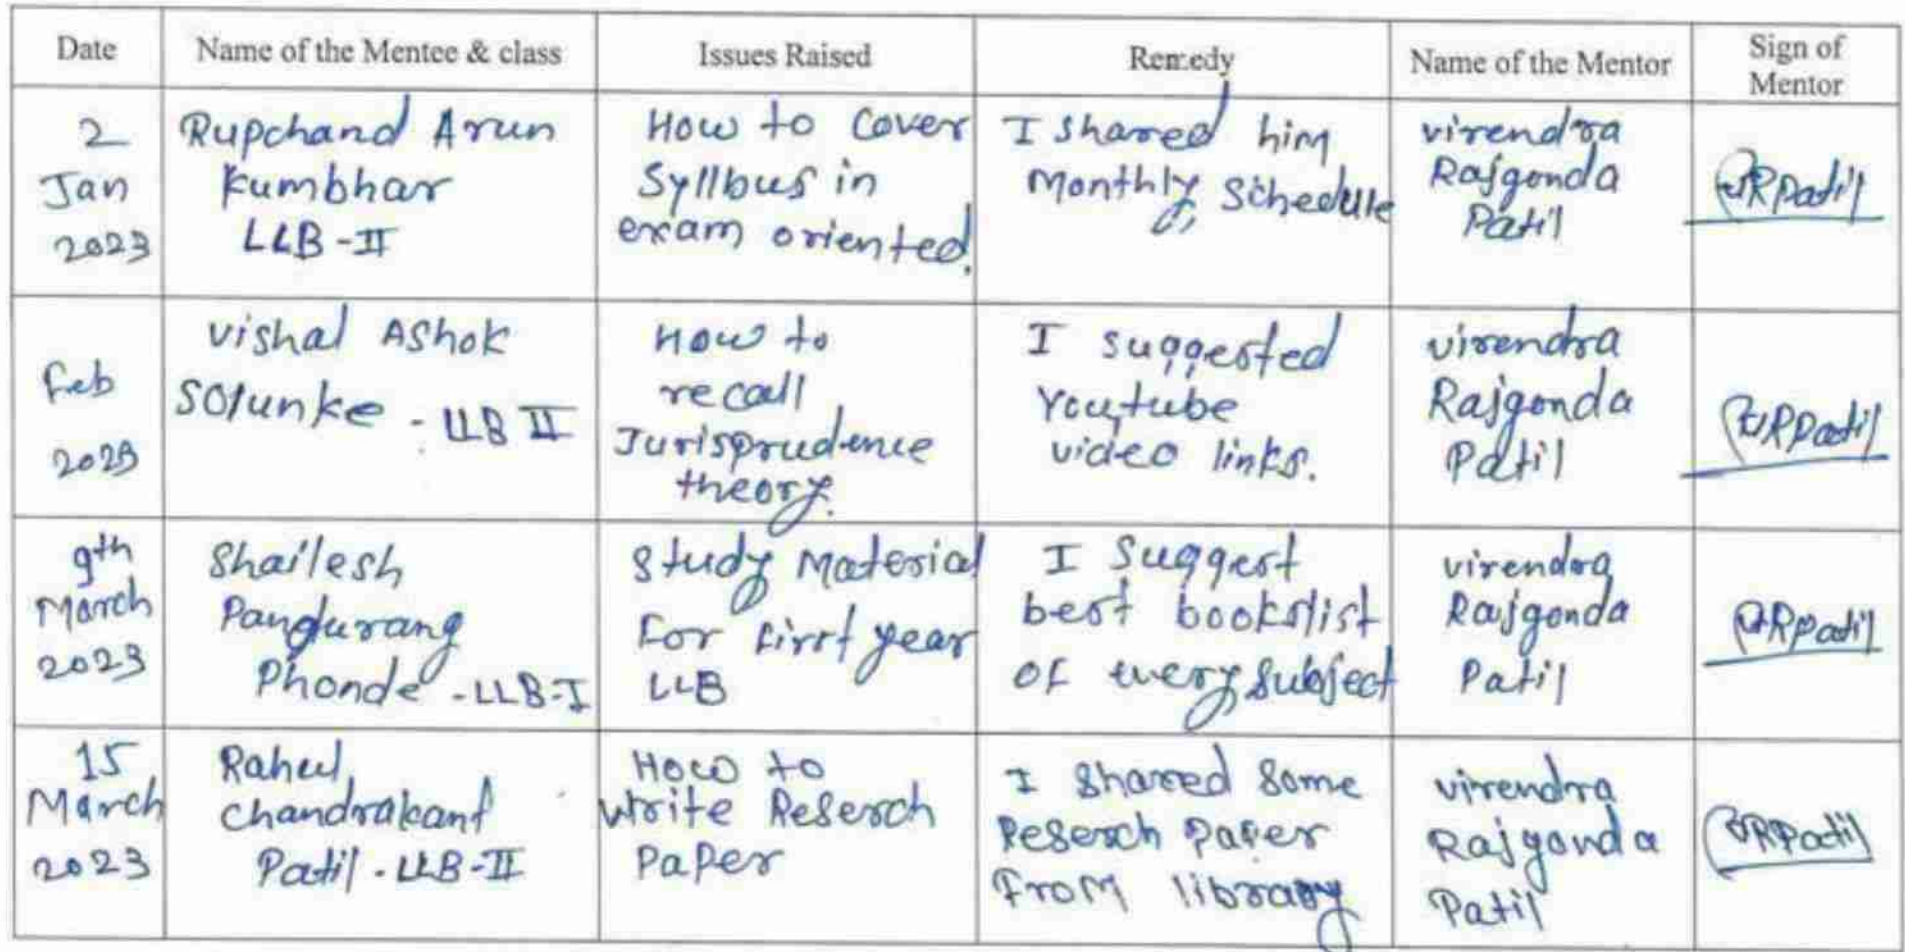 Date
Name of the Mentee & class
Issues Raised
Remedy
Name of the Mentor
Sign of
Mentor
2
Jan
2023
Rupchand Arun
Kumbhar
LLB-II
How to cover
Syllbus in
exam oriented.
I shared him
Monthly Schedule
virendra
Rajgonda
Patil
VRPatil
Feb
2023
vishal Ashok
Solunke - LLB II
How to
recall
Jurisprudence
theory.
I suggested
Youtube
video links.
virendra
Rajgonda
Patil
VRPatil
9th
March
2023
Shailesh
Pangurang
Phonde - LLB-I
Study Material
For First year
LLB
I suggest
best bookslist
of every subject
virendra
Rajgonda
Patil
VRPatil
15
March
2023
Rahul
chandrakant
Patil - LLB-II
How to
write Reserch
Paper
I shared some
Reserch Paper
From library
virendra
Rajgonda
Patil
VRPatil